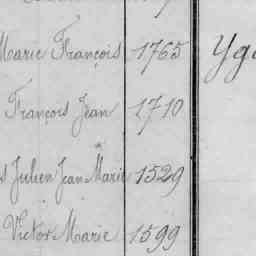 Marie François 1765
François Jean 1710
s Julien Jean Marie 1529
Victor Marie 1599